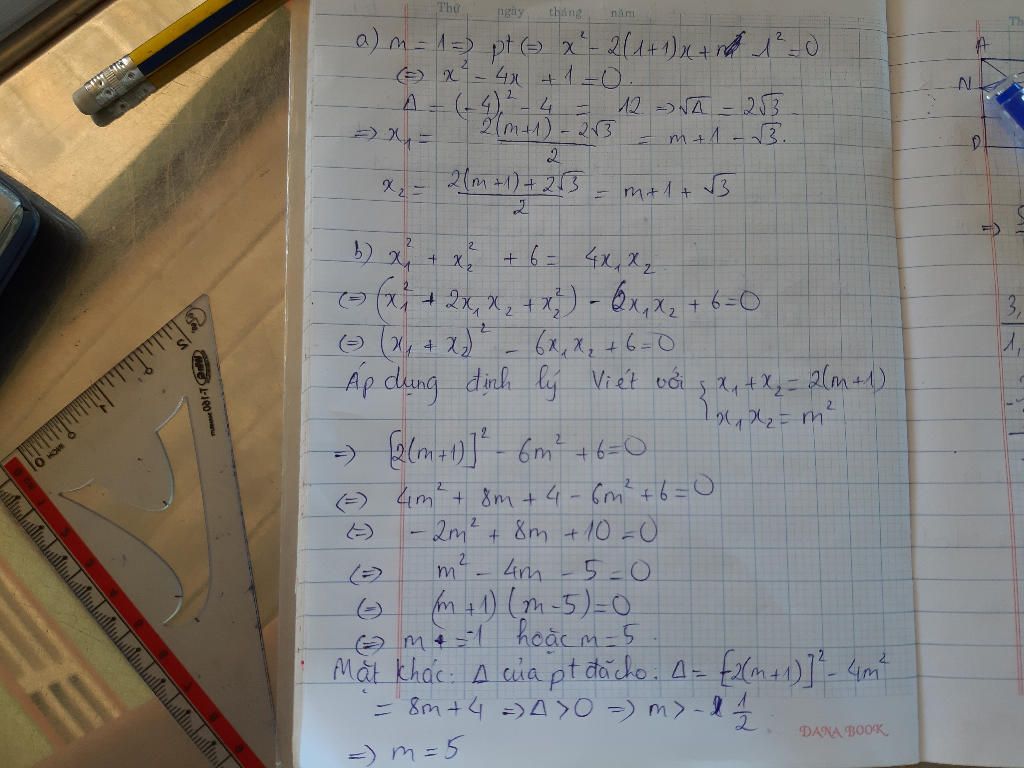 Thứ ngày tháng năm
a) m = 1 => pt (=> x² - 2(1+1)x + 1² = 0
(=) x² - 4x + 1 = 0.
Δ = (-4)² - 4 = 12 => √Δ = 2√3.
=> x₁ = (2(m+1) - 2√3)/2 = m+1 - √3.
x₂ = (2(m+1) + 2√3)/2 = m+1 + √3
b) x₁² + x₂² + 6 = 4x₁x₂
(=) (x₁² + 2x₁x₂ + x₂²) - 6x₁x₂ + 6 = 0
(=) (x₁ + x₂)² - 6x₁x₂ + 6 = 0
Áp dụng định lý Viét với { x₁ + x₂ = 2(m+1)
x₁x₂ = m²
=> [2(m+1)]² - 6m² + 6 = 0
(=) 4m² + 8m + 4 - 6m² + 6 = 0
(=) -2m² + 8m + 10 = 0
(=) m² - 4m - 5 = 0
(=) (m+1)(m-5) = 0
(=) m = -1 hoặc m = 5.
Mặt khác: Δ của pt đã cho: Δ = [-2(m+1)]² - 4m²
= 8m + 4 => Δ > 0 => m > - 1/2.
DANA BOOK
=> m = 5
A
N
D
=>
3,
1,